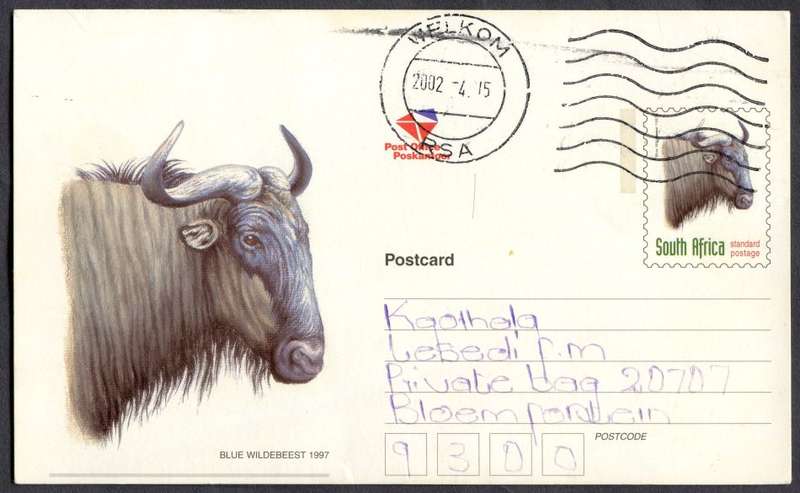 WELKOM
2002 -4. 15
RSA
Post Office
Poskantoor
South Africa
standard
postage
Postcard
Kgothalg
Lesedi f.m
Private bag 20707
Bloemfontein
9300
POSTCODE
BLUE WILDEBEEST 1997